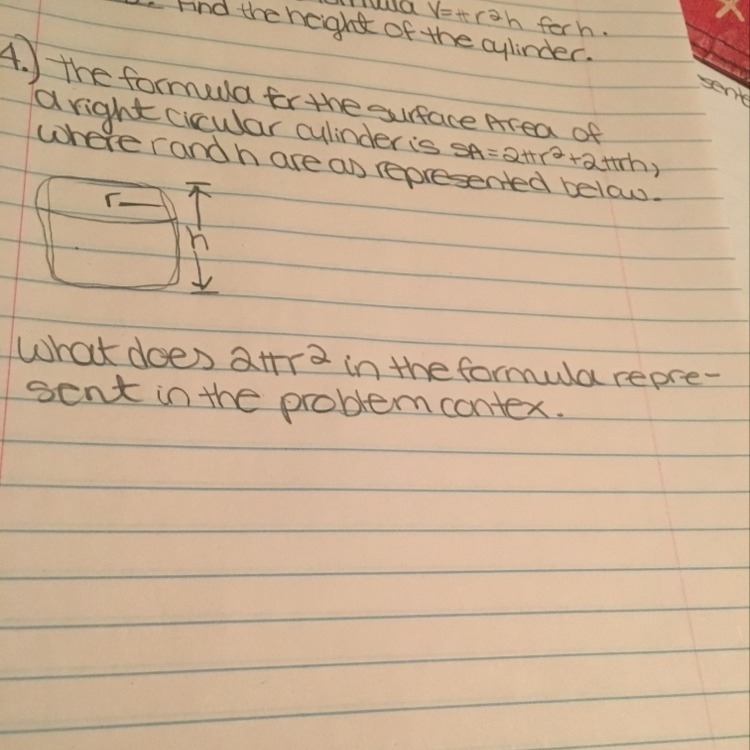 V=πr²h for h.
Find the height of the cylinder.
4.) The formula fr the surface Area of
a right circular cylinder is SA=2πr²+2πrh,
where r and h are as represented below.
r
h
What does 2πr² in the formula repre-
sent in the problem contex.